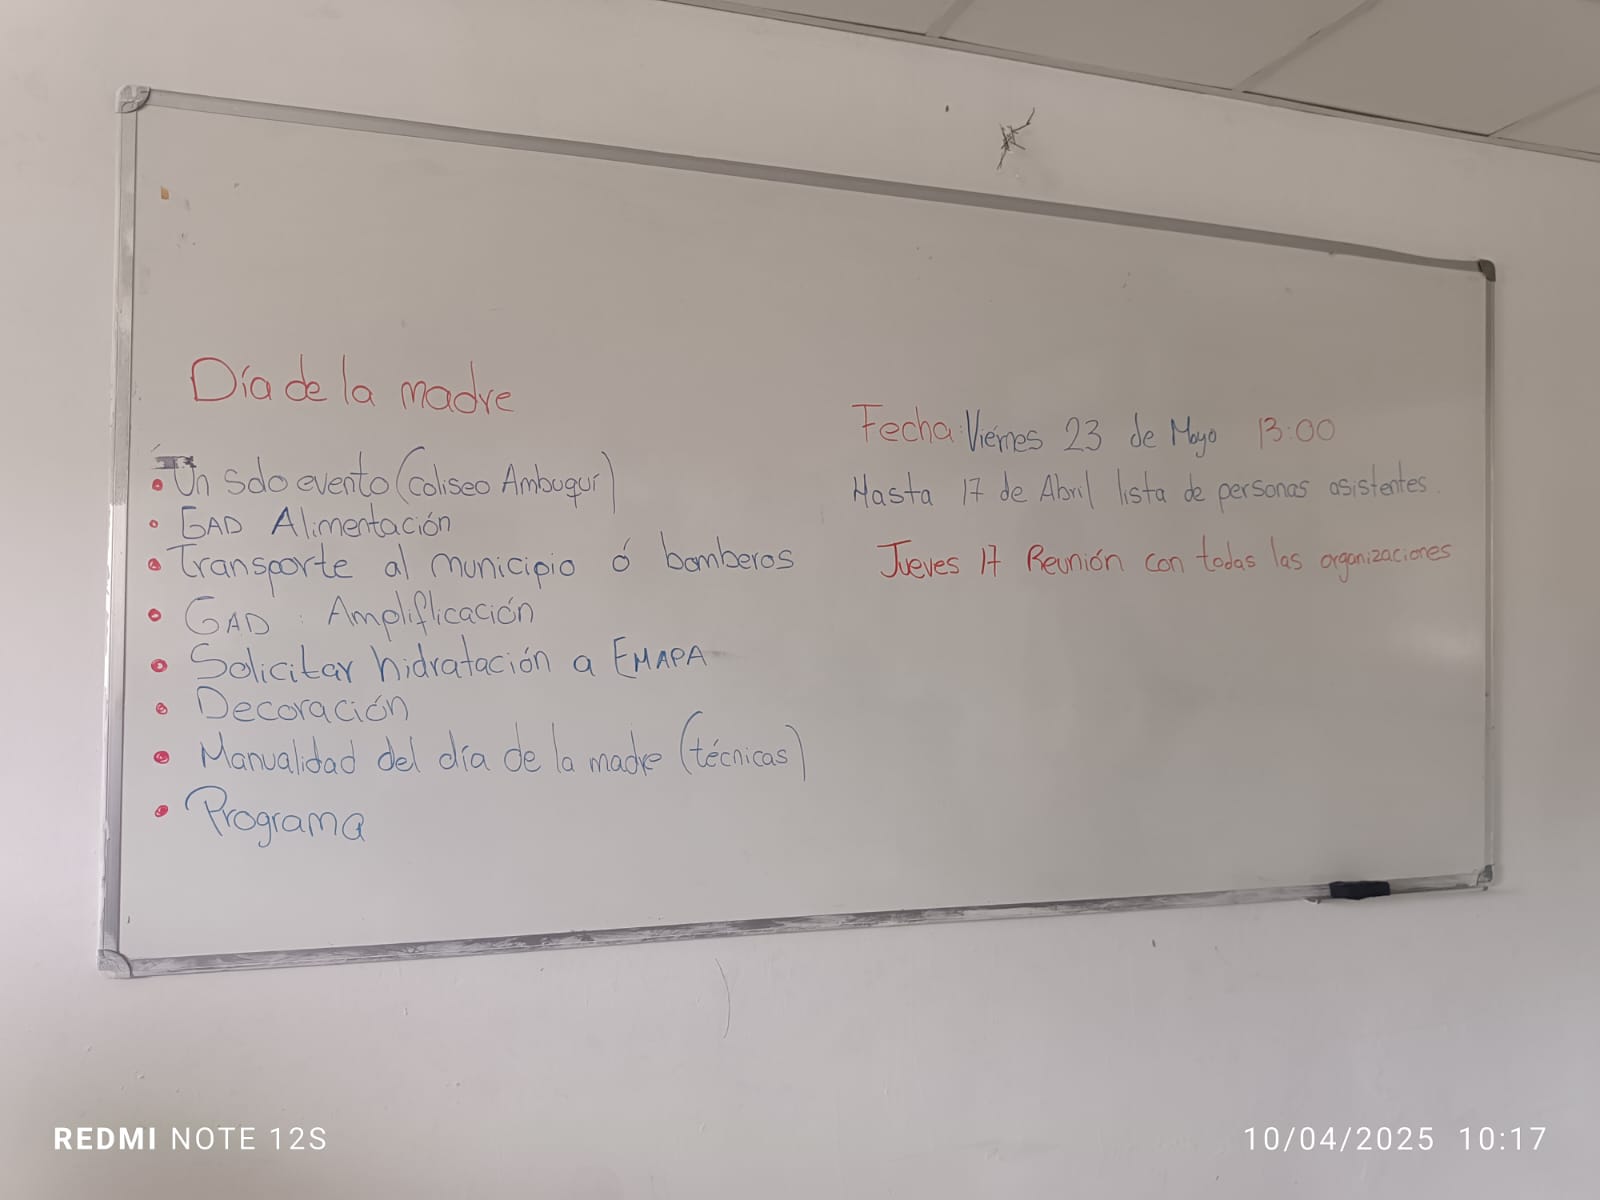 Día de la madre
• Un solo evento (Coliseo Ambuquí)
• GAD Alimentación
• Transporte al municipio ó bomberos
• GAD : Amplificación
• Solicitar hidratación a EMAPA
• Decoración
• Manualidad del día de la madre (técnicas)
• Programa
Fecha: Viernes 23 de Mayo 13:00
Hasta 17 de Abril lista de personas asistentes.
Jueves 17 Reunión con todas las organizaciones
REDMI NOTE 12S
10/04/2025 10:17